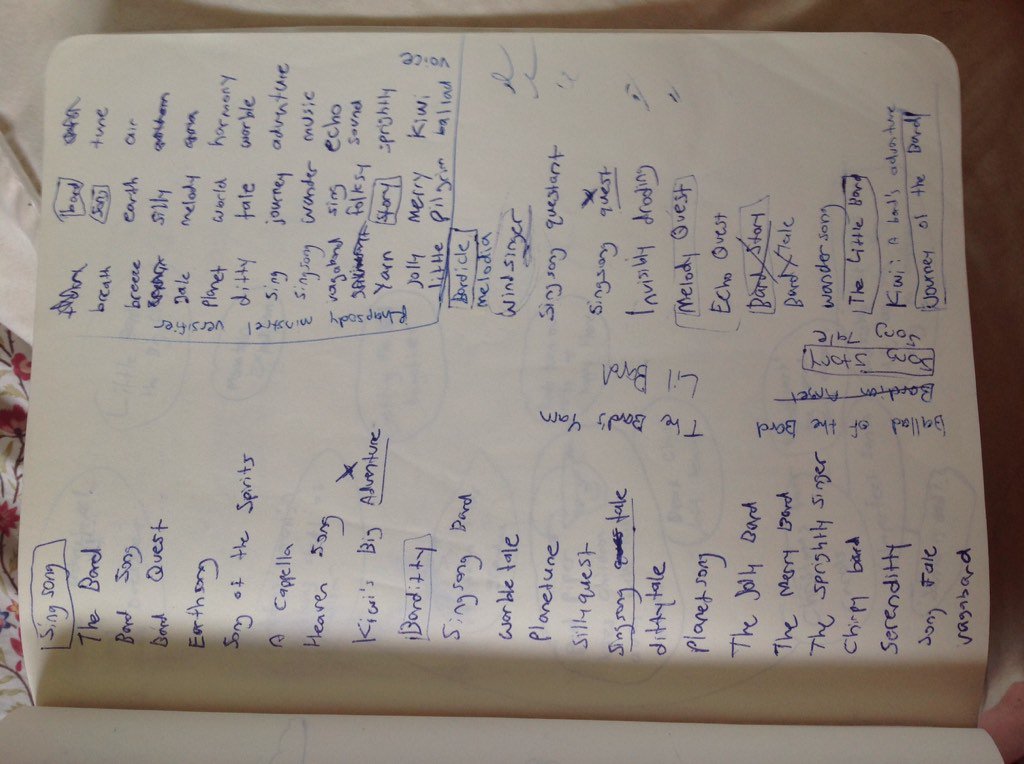 Sing song
The Bard
Bard Song
Bard Quest
Earthsong
Song of the Spirits
A Cappella
Heaven Song
Kiwi's Big Adventure
Barditty
Singsong Bard
warble tale
Planetune
Silly quest
Singsong tale
dittytale
Planetsong
The Jolly Bard
The Merry Bard
The Sprightly Singer
Chirpy bard
Serenditty
Song Tale
vagabard
bard
breath song tune
breeze earth air
silly
gale melody
planet world harmony
ditty tale warble
sing journey adventure
singsong wander music
vagabond sing echo
folksy sound
Yarn story sprightly
jolly merry Kiwi
little pilgrim ballad
voice
versifier
minstrel
Rhapsody
Bardicle
melodia
Windsinger
Singsong questant
Singsong quest
Invisibly
Melody Quest
Echo Quest
Bard Story
Bard Tale
wandersong
The Little Bard
Kiwi: A bards adventure
Journey of the Bard
The Bard's Yarn
The Li'l Bard
Ballad of the Bard
Song
Tale
Story